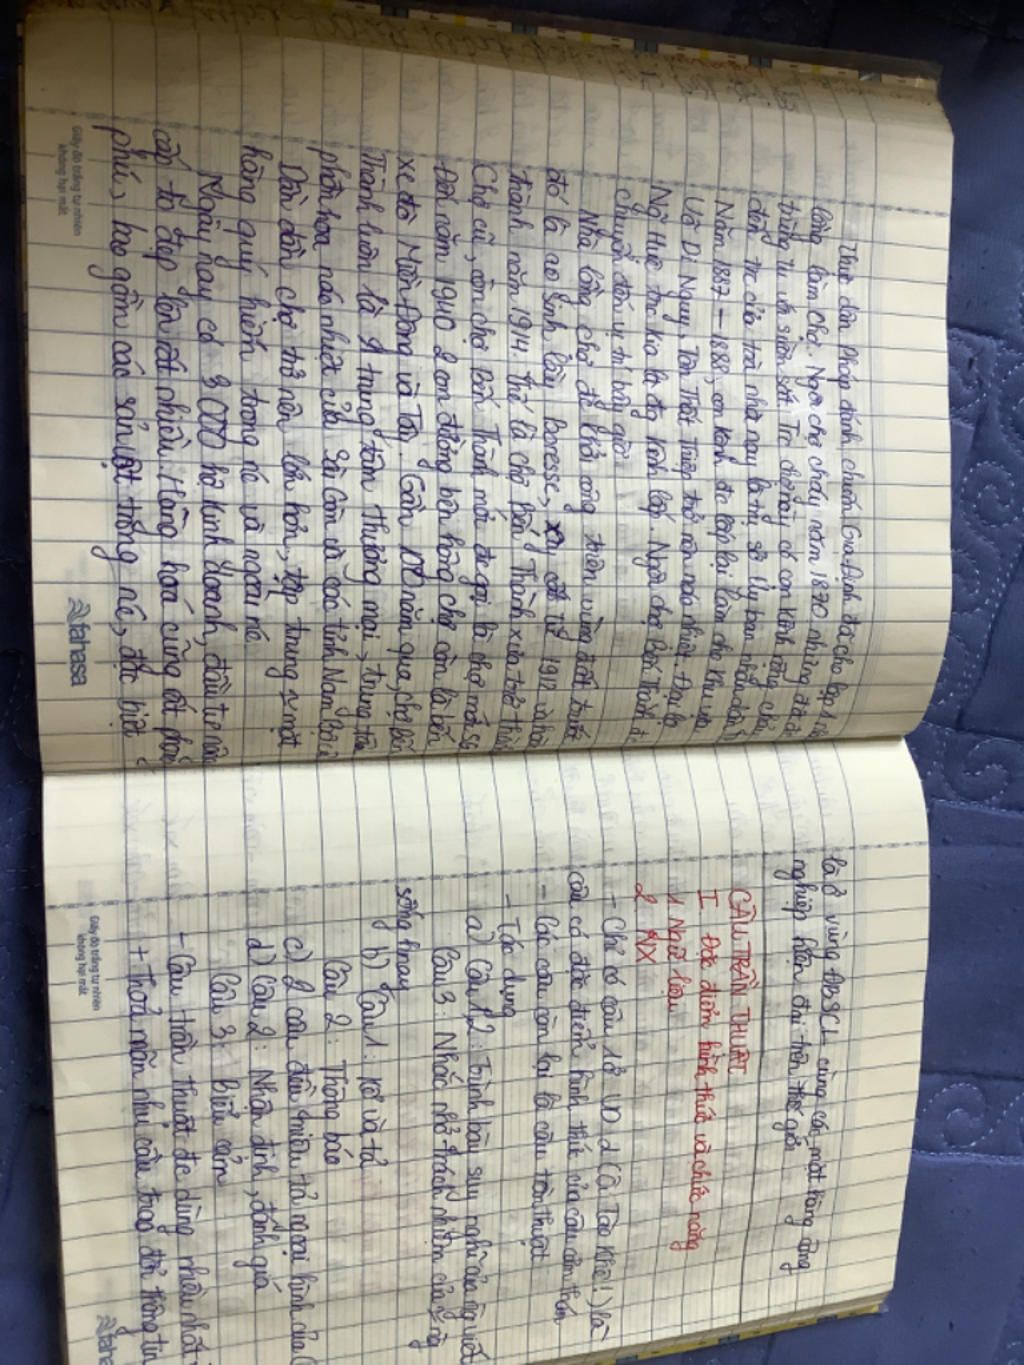 Thực dân Pháp đánh chiếm Gia Định đã cho lập 1
lồng làm chợ. Ngôi chợ cháy năm 1870 nhưng đã đc
trùng tu và sườn sắt. Trc chợ này có con kênh rộng chảy
đến trc cửa toà nhà nay là trụ sở Uỷ ban nhân dân
Năm 1887 - 1888, con kênh đc lấp lại làm cho khu vực
Võ Di Nguy, Tôn Thất Thiệp trở nên náo nhiệt. Đại lộ
Nguyễn Huệ trc kia là do kênh lấp. Ngôi chợ Bến Thành đc
chuyển đến vị trí bây giờ.
Nhà lồng chợ để khởi công trên vùng đất trước
đó là ao sình lầy Boresse, xây cất từ 1912 và hoàn
thành năm 1914. Thế là chợ Bến Thành xưa trở thành
Chợ cũ, còn chợ Bến Thành mới đc gọi là chợ mới. SG
Đến năm 1940 2 con đường bên hông chợ còn là bến
xe đò Miền Đông và Tây. Gần 100 năm qua, chợ Bến
Thành luôn là 1 trung tâm thương mại, trung tâm
phồn hoa náo nhiệt của Sài Gòn và các tỉnh Nam Bộ
Dần dần chợ trở nên lớn hơn, tập trung mặt
hàng quý hiếm trong nc và ngoài nc.
Ngày nay có 3000 hộ kinh doanh, đầu tư nâng
cấp to đẹp lên rất nhiều. Hàng hoá cũng rất phong
phú, bao gồm các sản vật trong nc, đặc biệt
fahasa
Giấy độ trắng tự nhiên
không hại mắt
là ở vùng ĐBSCL cùng các mặt hàng công
nghiệp hiện đại trên thế giới
CÂU TRẦN THUẬT
I. Đặc điểm hình thức và chức năng
1 Ngữ liệu
2 NX
- Chỉ có câu 1 ở VD d (Ôi Tào Khê!) là
câu có đặc điểm hình thức của câu cảm thán
- Các câu còn lại là câu trần thuật
- Tác dụng
a) Câu 1,2: Trình bày suy nghĩ của người viết
Câu 3: Nhắc nhở trách nhiệm của
sống hnay
b) Câu 1: kể và tả
Câu 2: Thông báo
c) 2 câu đều miêu tả ngoại hình của
d) Câu 2: Nhận định, đánh giá
Câu 3: biểu cảm
- Câu trần thuật đc dùng nhiều nhất
+ Thoả mãn nhu cầu trao đổi thông tin
Giấy độ trắng tự nhiên
không hại mắt
fahasa